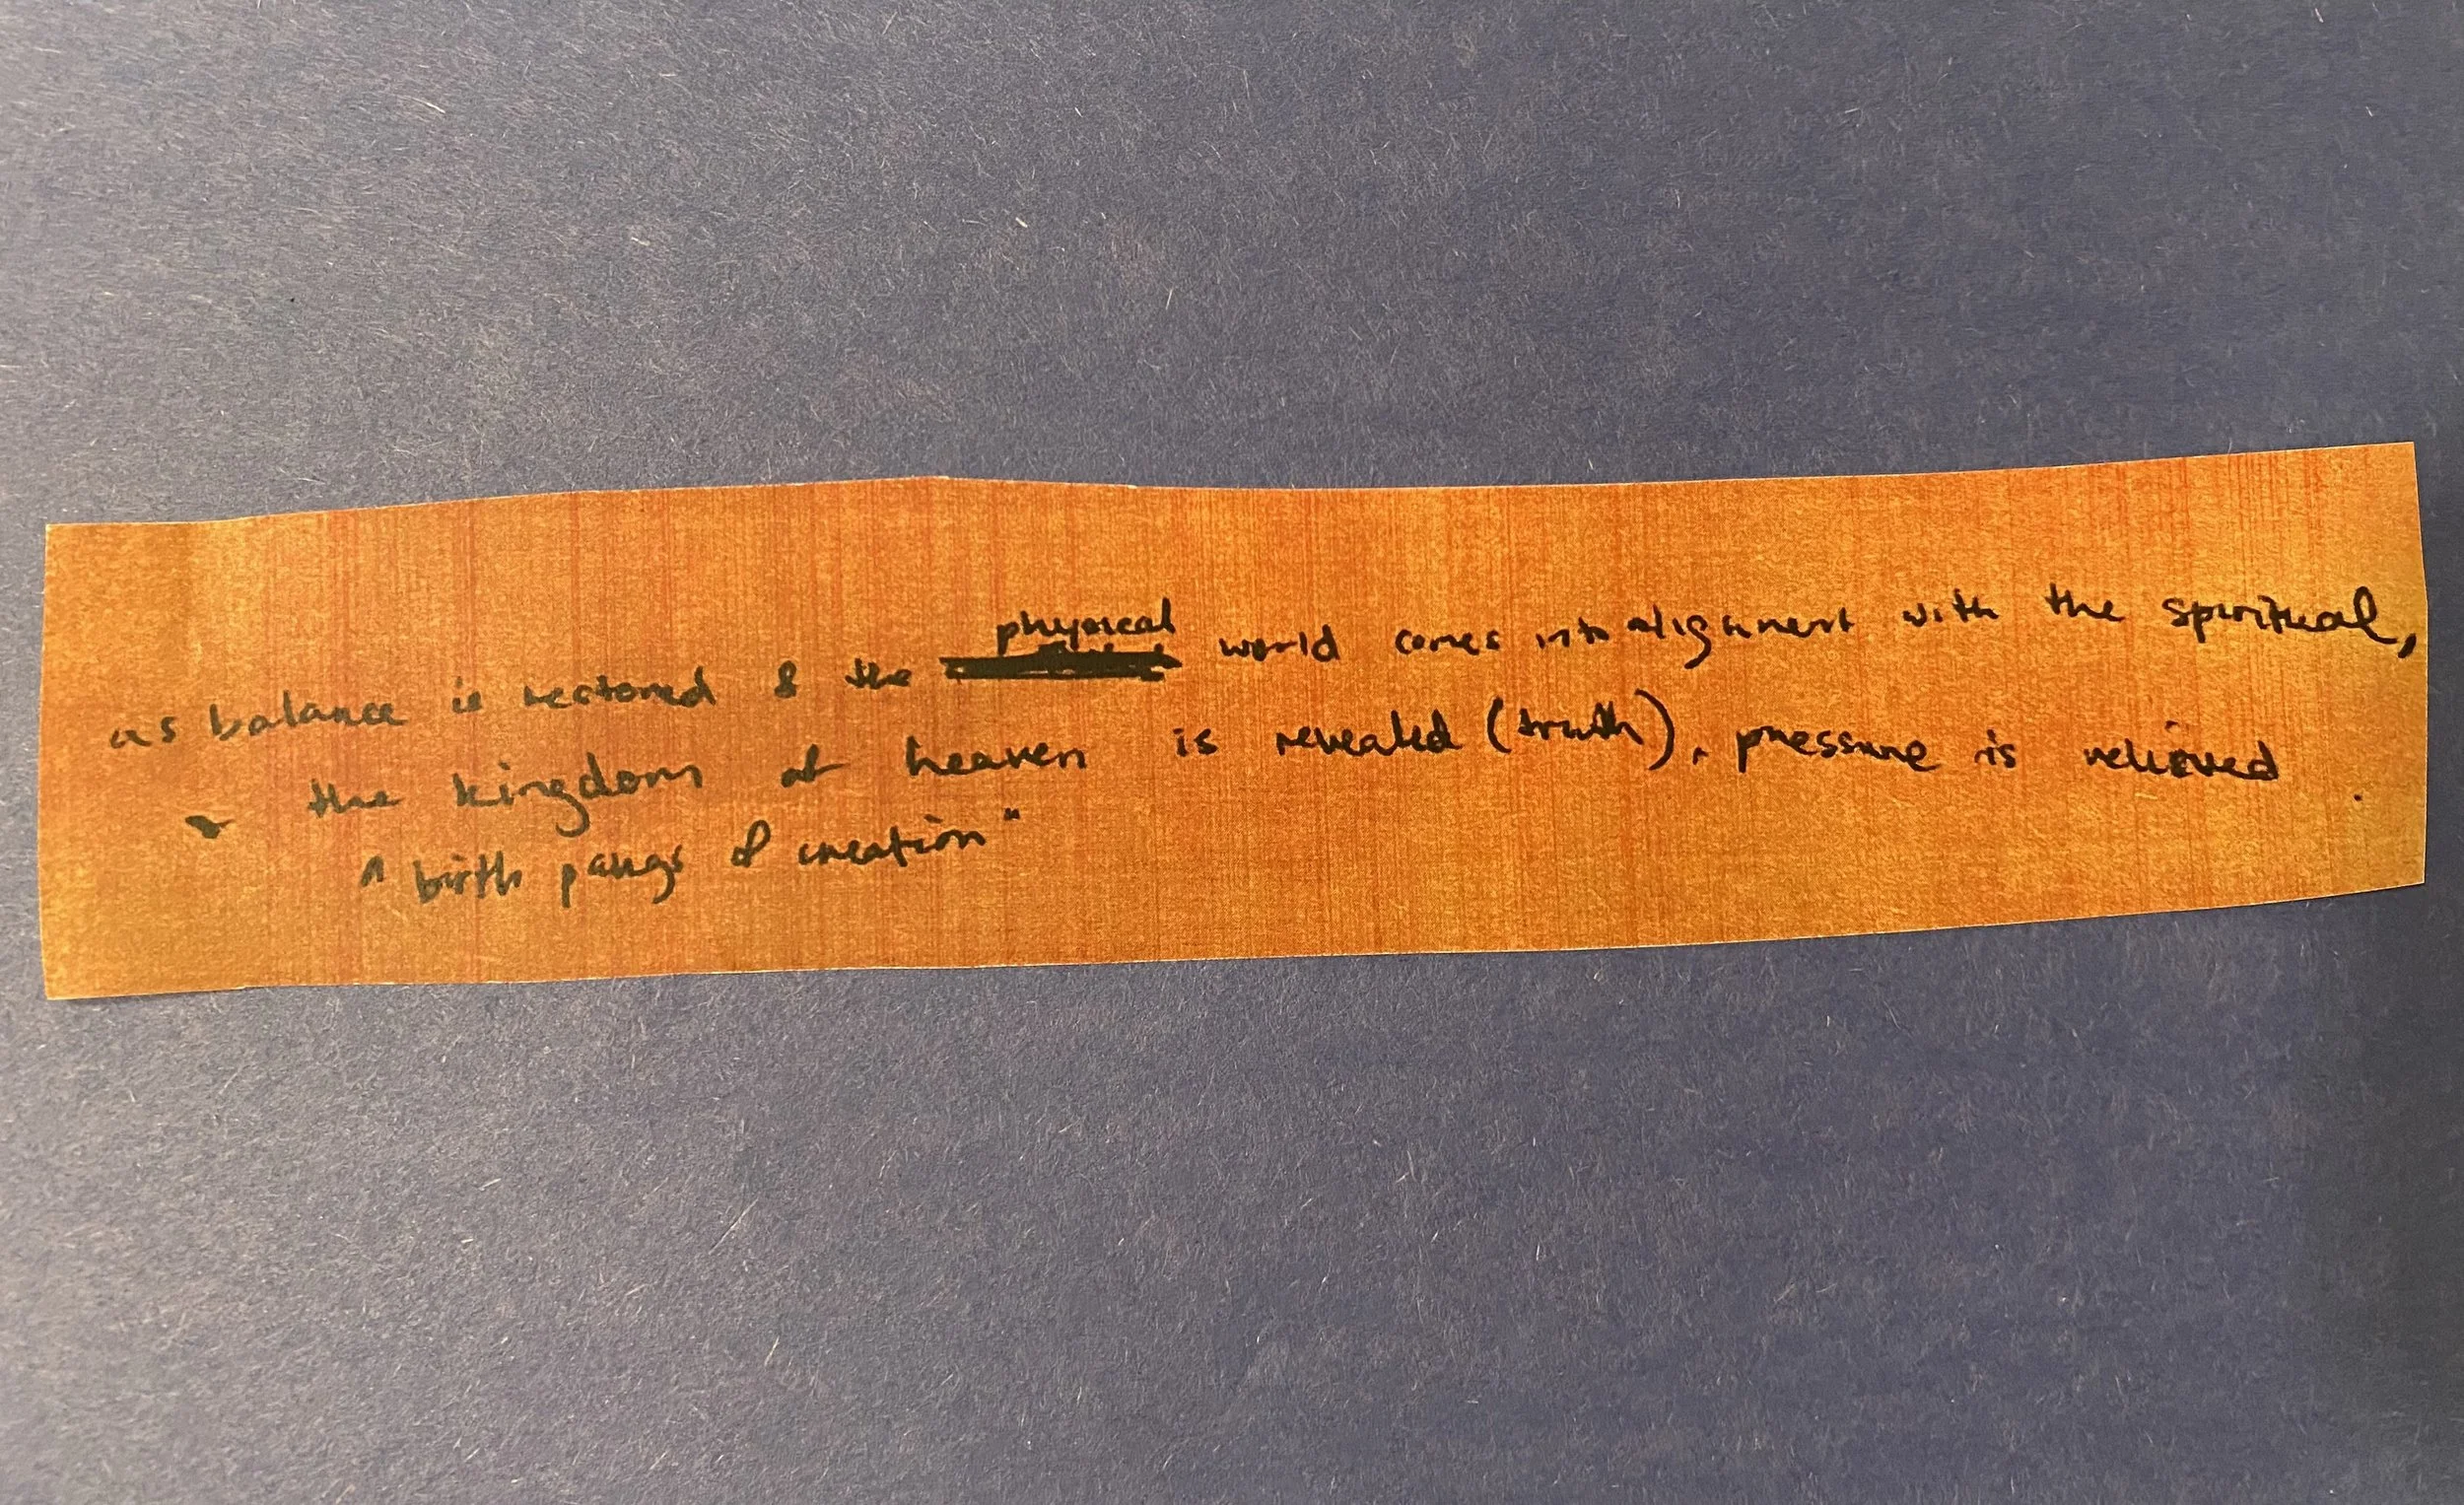 as balance is restored & the physical world comes into alignment with the spiritual,
the kingdom of heaven is revealed (truth), pressure is relieved
"birth pangs of creation"